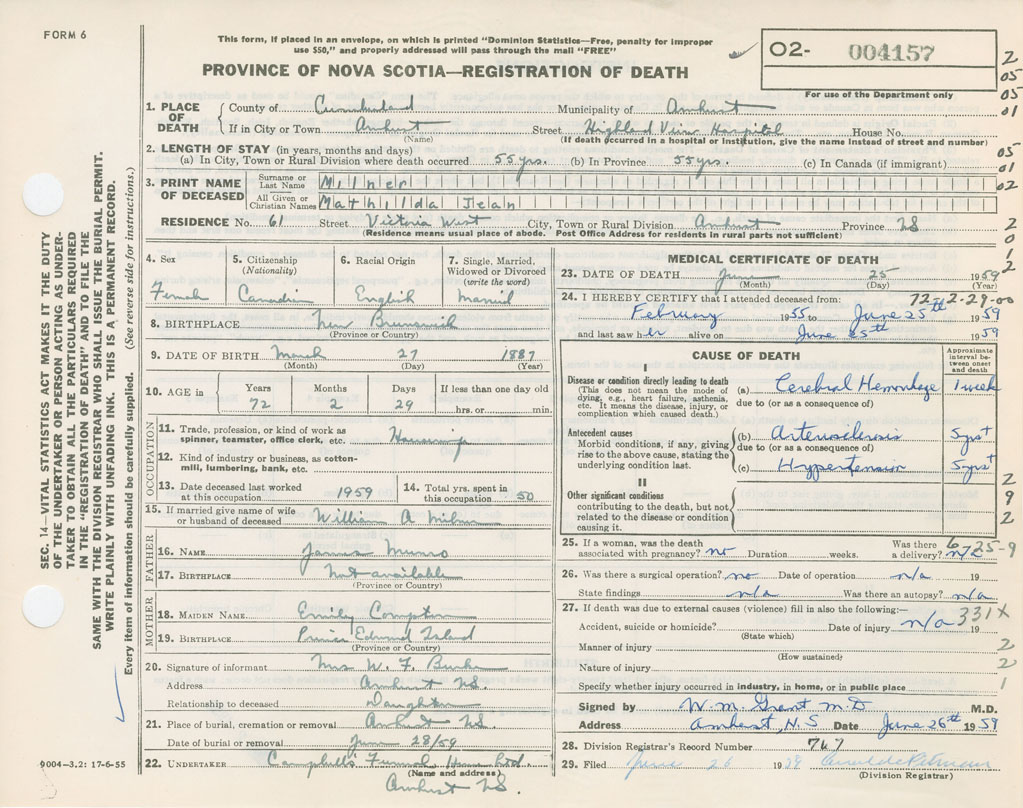 FORM 6
This form, if placed in an envelope, on which is printed "Dominion Statistics—Free, penalty for improper
use $50," and properly addressed will pass through the mail "FREE"
PROVINCE OF NOVA SCOTIA—REGISTRATION OF DEATH
02- 004157
For use of the Department only
2
05
05
01
05
01
02
2
0
1
2
SEC. 14—VITAL STATISTICS ACT MAKES IT THE DUTY
OF THE UNDERTAKER OR PERSON ACTING AS UNDER-
TAKER TO OBTAIN ALL THE PARTICULARS REQUIRED
IN THE "REGISTRATION OF DEATH" AND TO FILE THE
SAME WITH THE DIVISION REGISTRAR WHO SHALL ISSUE THE BURIAL PERMIT.
WRITE PLAINLY WITH UNFADING INK. THIS IS A PERMANENT RECORD.
Every item of information should be carefully supplied. (See reverse side for instructions.)
1. PLACE OF DEATH
County of Cumberland Municipality of Amherst
If in City or Town Amherst Street Highland View Hospital House No.
(Name) (If death occurred in a hospital or institution, give the name instead of street and number)
2. LENGTH OF STAY (in years, months and days)
(a) In City, Town or Rural Division where death occurred 55 yrs. (b) In Province 55 yrs. (c) In Canada (if immigrant)
3. PRINT NAME OF DECEASED
Surname or Last Name Milner
All Given or Christian Names Mathilda Jean
RESIDENCE No. 61 Street Victoria West City, Town or Rural Division Amherst Province NS
(Residence means usual place of abode. Post Office Address for residents in rural parts not sufficient)
4. Sex Female
5. Citizenship (Nationality) Canadian
6. Racial Origin English
7. Single, Married, Widowed or Divorced (write the word) Married
8. BIRTHPLACE New Brunswick
(Province or Country)
9. DATE OF BIRTH March 27 1887
(Month) (Day) (Year)
10. AGE in Years 72 Months 2 Days 29 If less than one day old hrs. or min.
OCCUPATION
11. Trade, profession, or kind of work as
spinner, teamster, office clerk, etc. Housewife
12. Kind of industry or business, as cotton-
mill, lumbering, bank, etc.
13. Date deceased last worked at this occupation 1959
14. Total yrs. spent in this occupation 50
15. If married give name of wife
or husband of deceased William A Milner
FATHER
16. NAME James Munro
17. BIRTHPLACE Not available
(Province or Country)
MOTHER
18. MAIDEN NAME Emily Compton
19. BIRTHPLACE Prince Edward Island
(Province or Country)
20. Signature of informant Mrs W. F. Burke
Address Amherst NS.
Relationship to deceased Daughter
21. Place of burial, cremation or removal Amherst NS
Date of burial or removal June 28/59
22. UNDERTAKER Campbells Funeral Home Ltd.
(Name and address)
Amherst NS.
9004-3,2: 17-6-55
MEDICAL CERTIFICATE OF DEATH
23. DATE OF DEATH June 25 1959
(Month) (Day) (Year)
72-2-29-00
24. I HEREBY CERTIFY that I attended deceased from:
February 1955 to June 25th 1959
and last saw her alive on June 25th 1959
CAUSE OF DEATH
Approximate interval between onset and death
I
Disease or condition directly leading to death
(This does not mean the mode of
dying, e.g., heart failure, asthenia,
etc. It means the disease, injury, or
complication which caused death.)
(a) Cerebral Hemorrhage 1 week
due to (or as a consequence of)
Antecedent causes
Morbid conditions, if any, giving
rise to the above cause, stating the
underlying condition last.
(b) Arteriosclerosis 5 yrs+
due to (or as a consequence of)
(c) Hypertension 5 yrs+
II
Other significant conditions
contributing to the death, but not
related to the disease or condition
causing it.
2
9
2
25. If a woman, was the death
associated with pregnancy? no Duration weeks. Was there a delivery? n/a
6-25-9
26. Was there a surgical operation? no Date of operation n/a 19
State findings n/a Was there an autopsy? n/a
27. If death was due to external causes (violence) fill in also the following:—
Accident, suicide or homicide? Date of injury n/a 19
331X
(State which)
Manner of injury 2
(How sustained)
Nature of injury 2
Specify whether injury occurred in industry, in home, or in public place 1
Signed by W. M. Grant M.D M.D.
Address Amherst, N.S Date June 26th 1959
28. Division Registrar's Record Number 747
29. Filed June 26 1959
(Division Registrar)